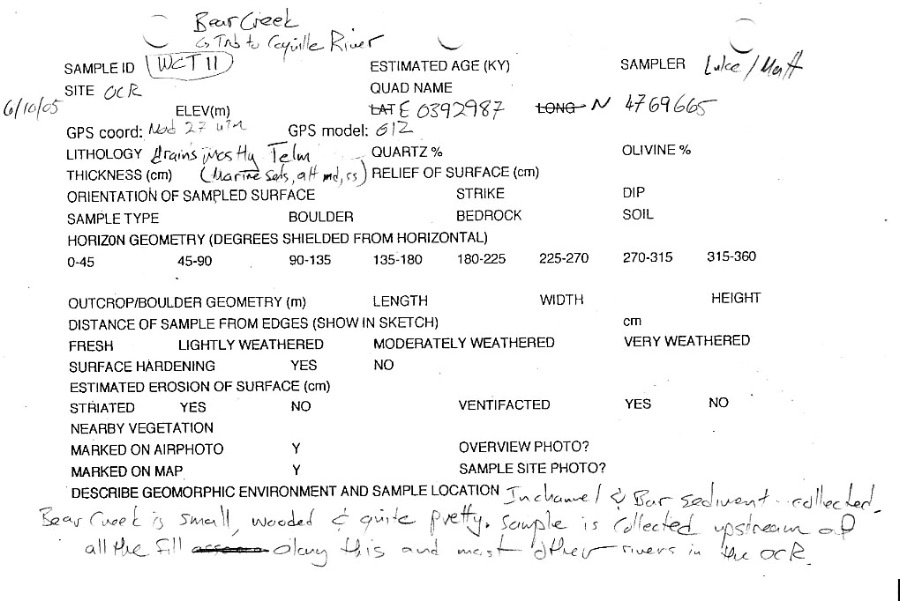 Bear Creek
↳ Trib to Coquille River
SAMPLE ID WCT 11 ESTIMATED AGE (KY) SAMPLER Luke/Matt
SITE OCR QUAD NAME
6/10/05 ELEV(m) LAT E 0392987 LONG N 4769665
GPS coord: Nad 27 utm GPS model: G12
LITHOLOGY drains mostly Telm QUARTZ % OLIVINE %
THICKNESS (cm) (Marine seds, alt md, ss) RELIEF OF SURFACE (cm)
ORIENTATION OF SAMPLED SURFACE STRIKE DIP
SAMPLE TYPE BOULDER BEDROCK SOIL
HORIZON GEOMETRY (DEGREES SHIELDED FROM HORIZONTAL)
0-45 45-90 90-135 135-180 180-225 225-270 270-315 315-360
OUTCROP/BOULDER GEOMETRY (m) LENGTH WIDTH HEIGHT
DISTANCE OF SAMPLE FROM EDGES (SHOW IN SKETCH) cm
FRESH LIGHTLY WEATHERED MODERATELY WEATHERED VERY WEATHERED
SURFACE HARDENING YES NO
ESTIMATED EROSION OF SURFACE (cm)
STRIATED YES NO VENTIFACTED YES NO
NEARBY VEGETATION
MARKED ON AIRPHOTO Y OVERVIEW PHOTO?
MARKED ON MAP Y SAMPLE SITE PHOTO?
DESCRIBE GEOMORPHIC ENVIRONMENT AND SAMPLE LOCATION In channel & Bar sediment collected.
Bear Creek is small, wooded & quite pretty. Sample is collected upstream of
all the fill along this and most other rivers in the OCR.